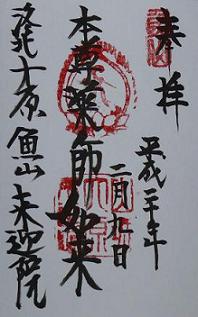 奉拝
平成二十年
二月九日
本尊薬師如来
洛北大原魚山来迎院